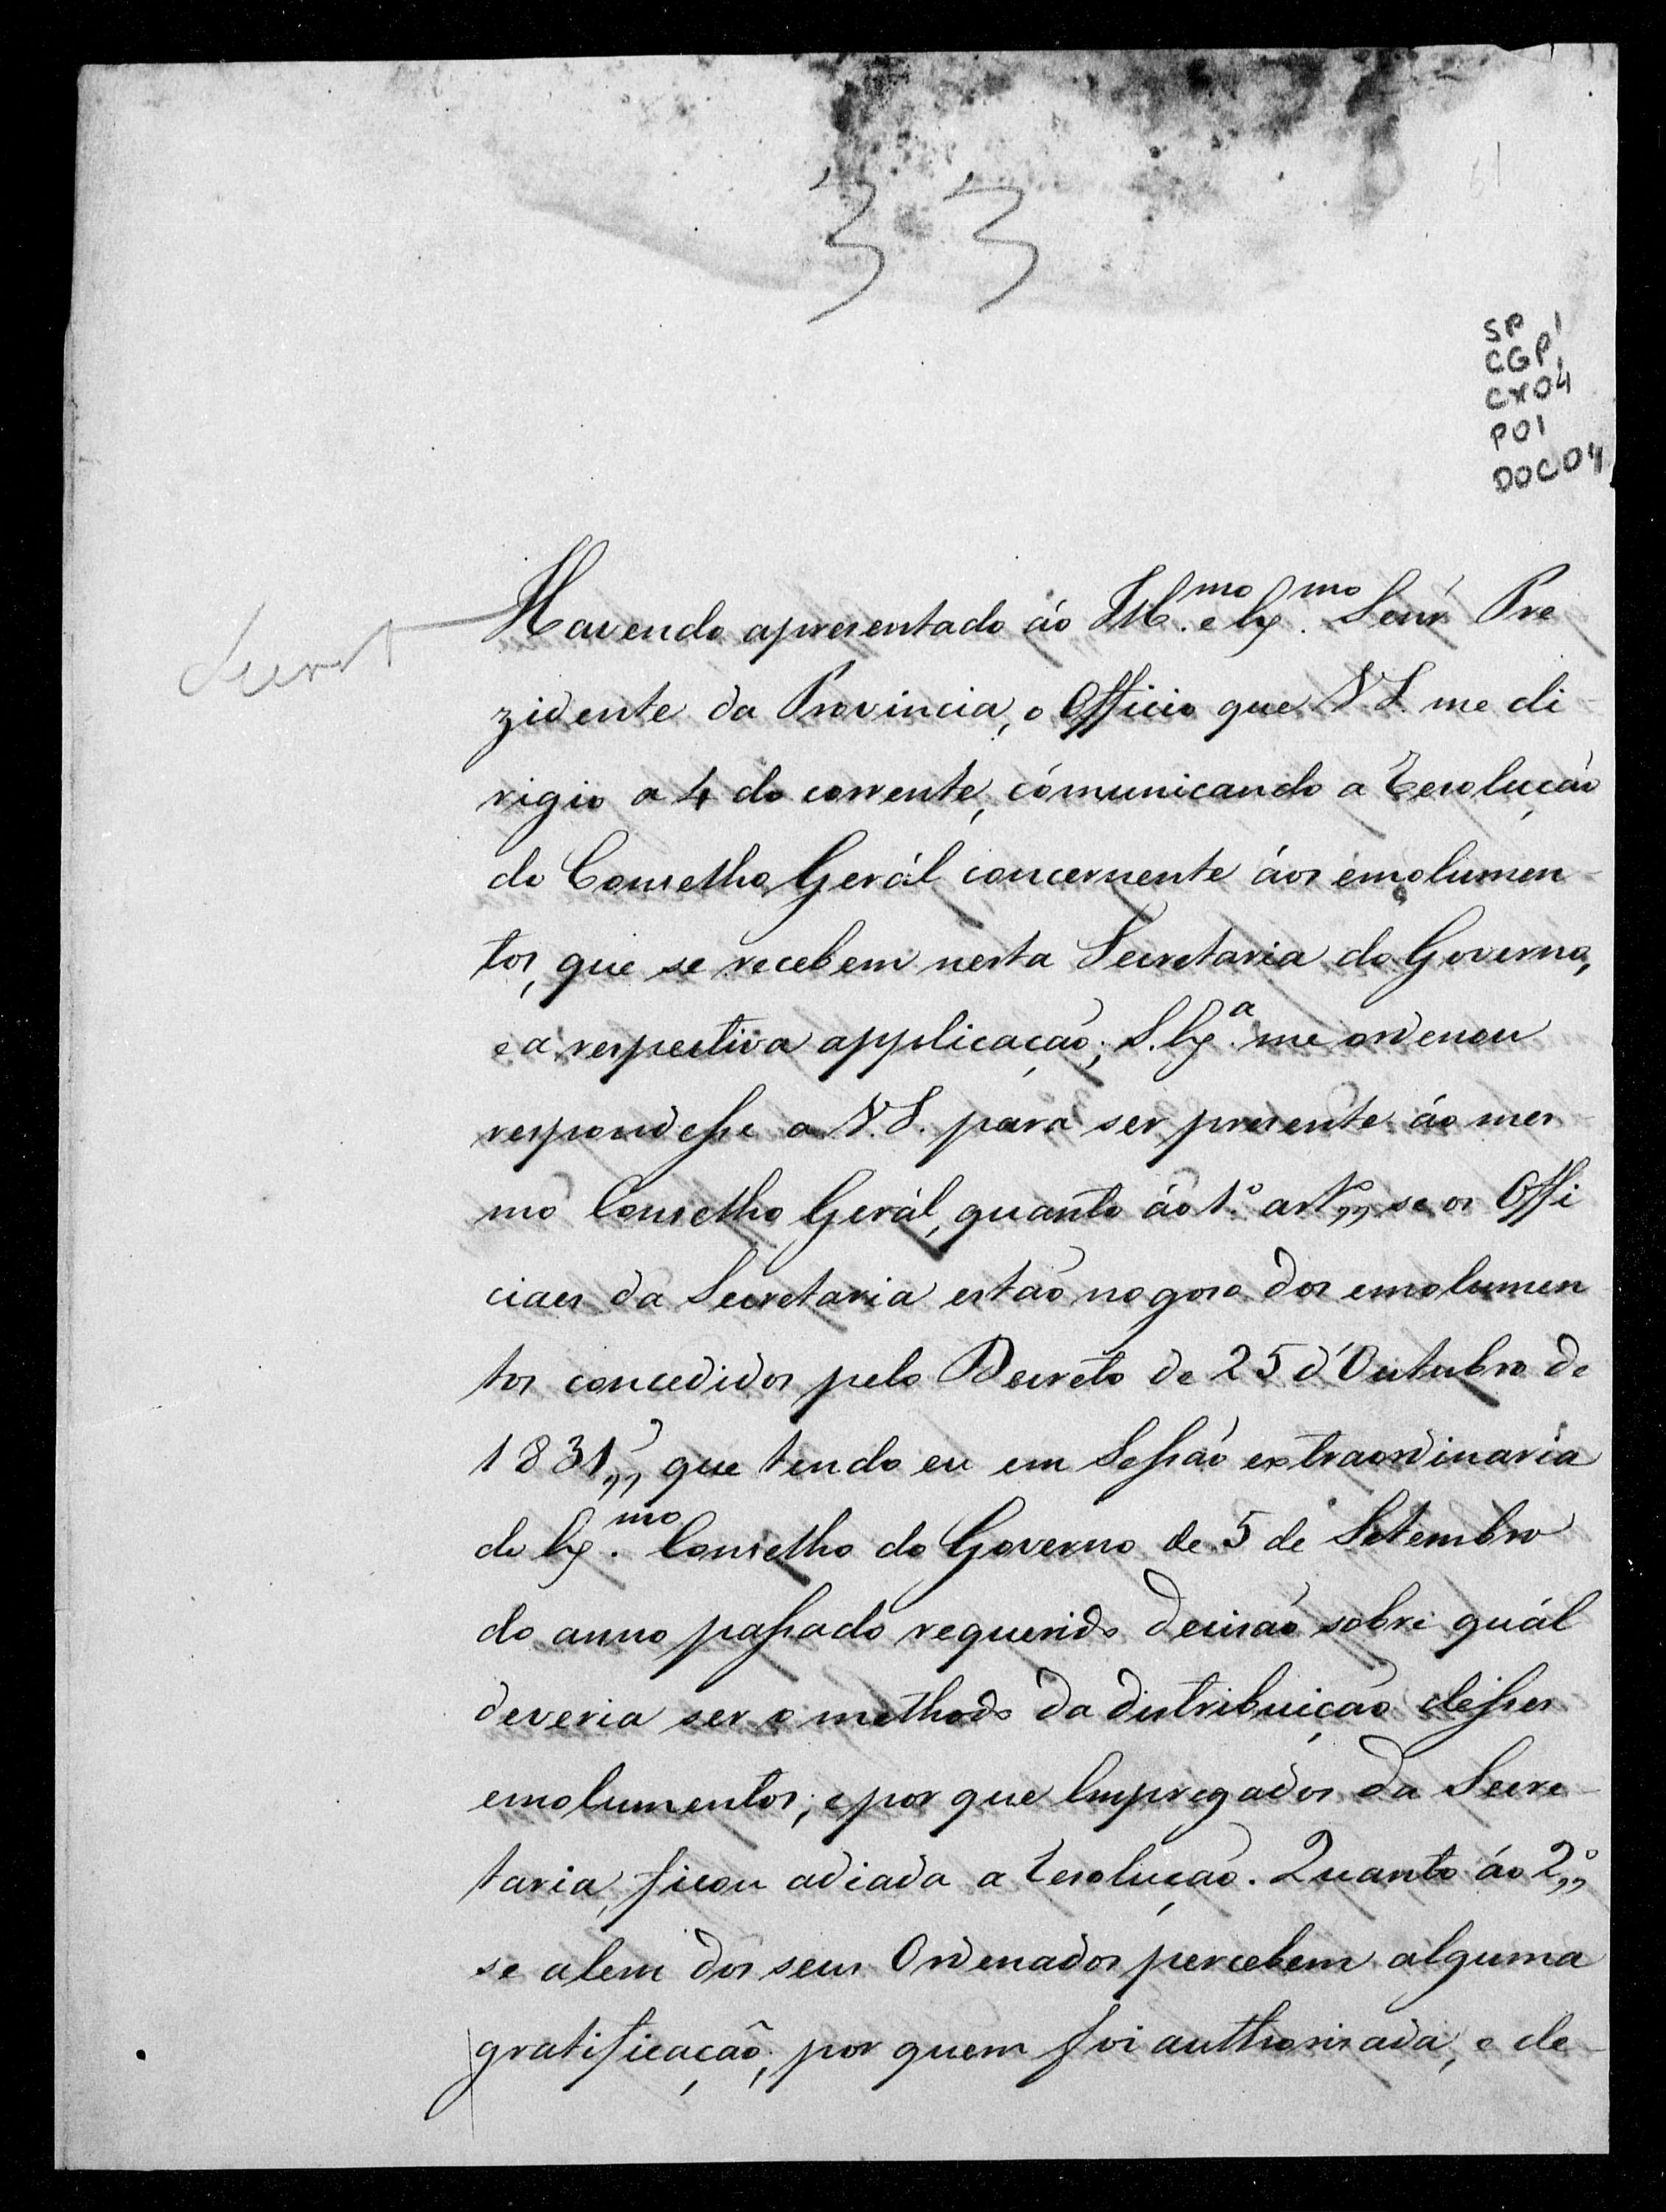 33
61
SP
CGP1
CX04
P01
DOC04
Havendo apresentado áo Ill.mo e Ex.mo Senr. Pre
zidente da Provincia, o Officio que V.S. me di-
rigio a 4 do corrente, cómunicando a Resolução
do Conselho Gerál concernente áos emolumen-
tos, que se recebem nesta Secretaria do Governo,
e a respectiva applicação; S. Ex.a me ordenou
respondesse a V.S. para ser presente áo mes-
mo Conselho Gerál, quanto áo 1.º art.º,, se os Offi
ciaes da Secretaria estão no goso dos emolumen
tos concedidos pelo Decreto de 25 d'Outubro de
1831,,? que tendo eu em Sessão extraordinaria
do Ex.mo Conselho do Governo de 5 de Setembro
do anno passado requerido decisão sobre quál
deveria ser o methodo da distribuição desses
emolumentos, e por que Empregados da Secre-
taria, ficou adiada a Resolução. Quanto áo 2.º,,
se alem dos seus Ordenados percebem alguma
gratificação, por quem foi authorisada, e de-